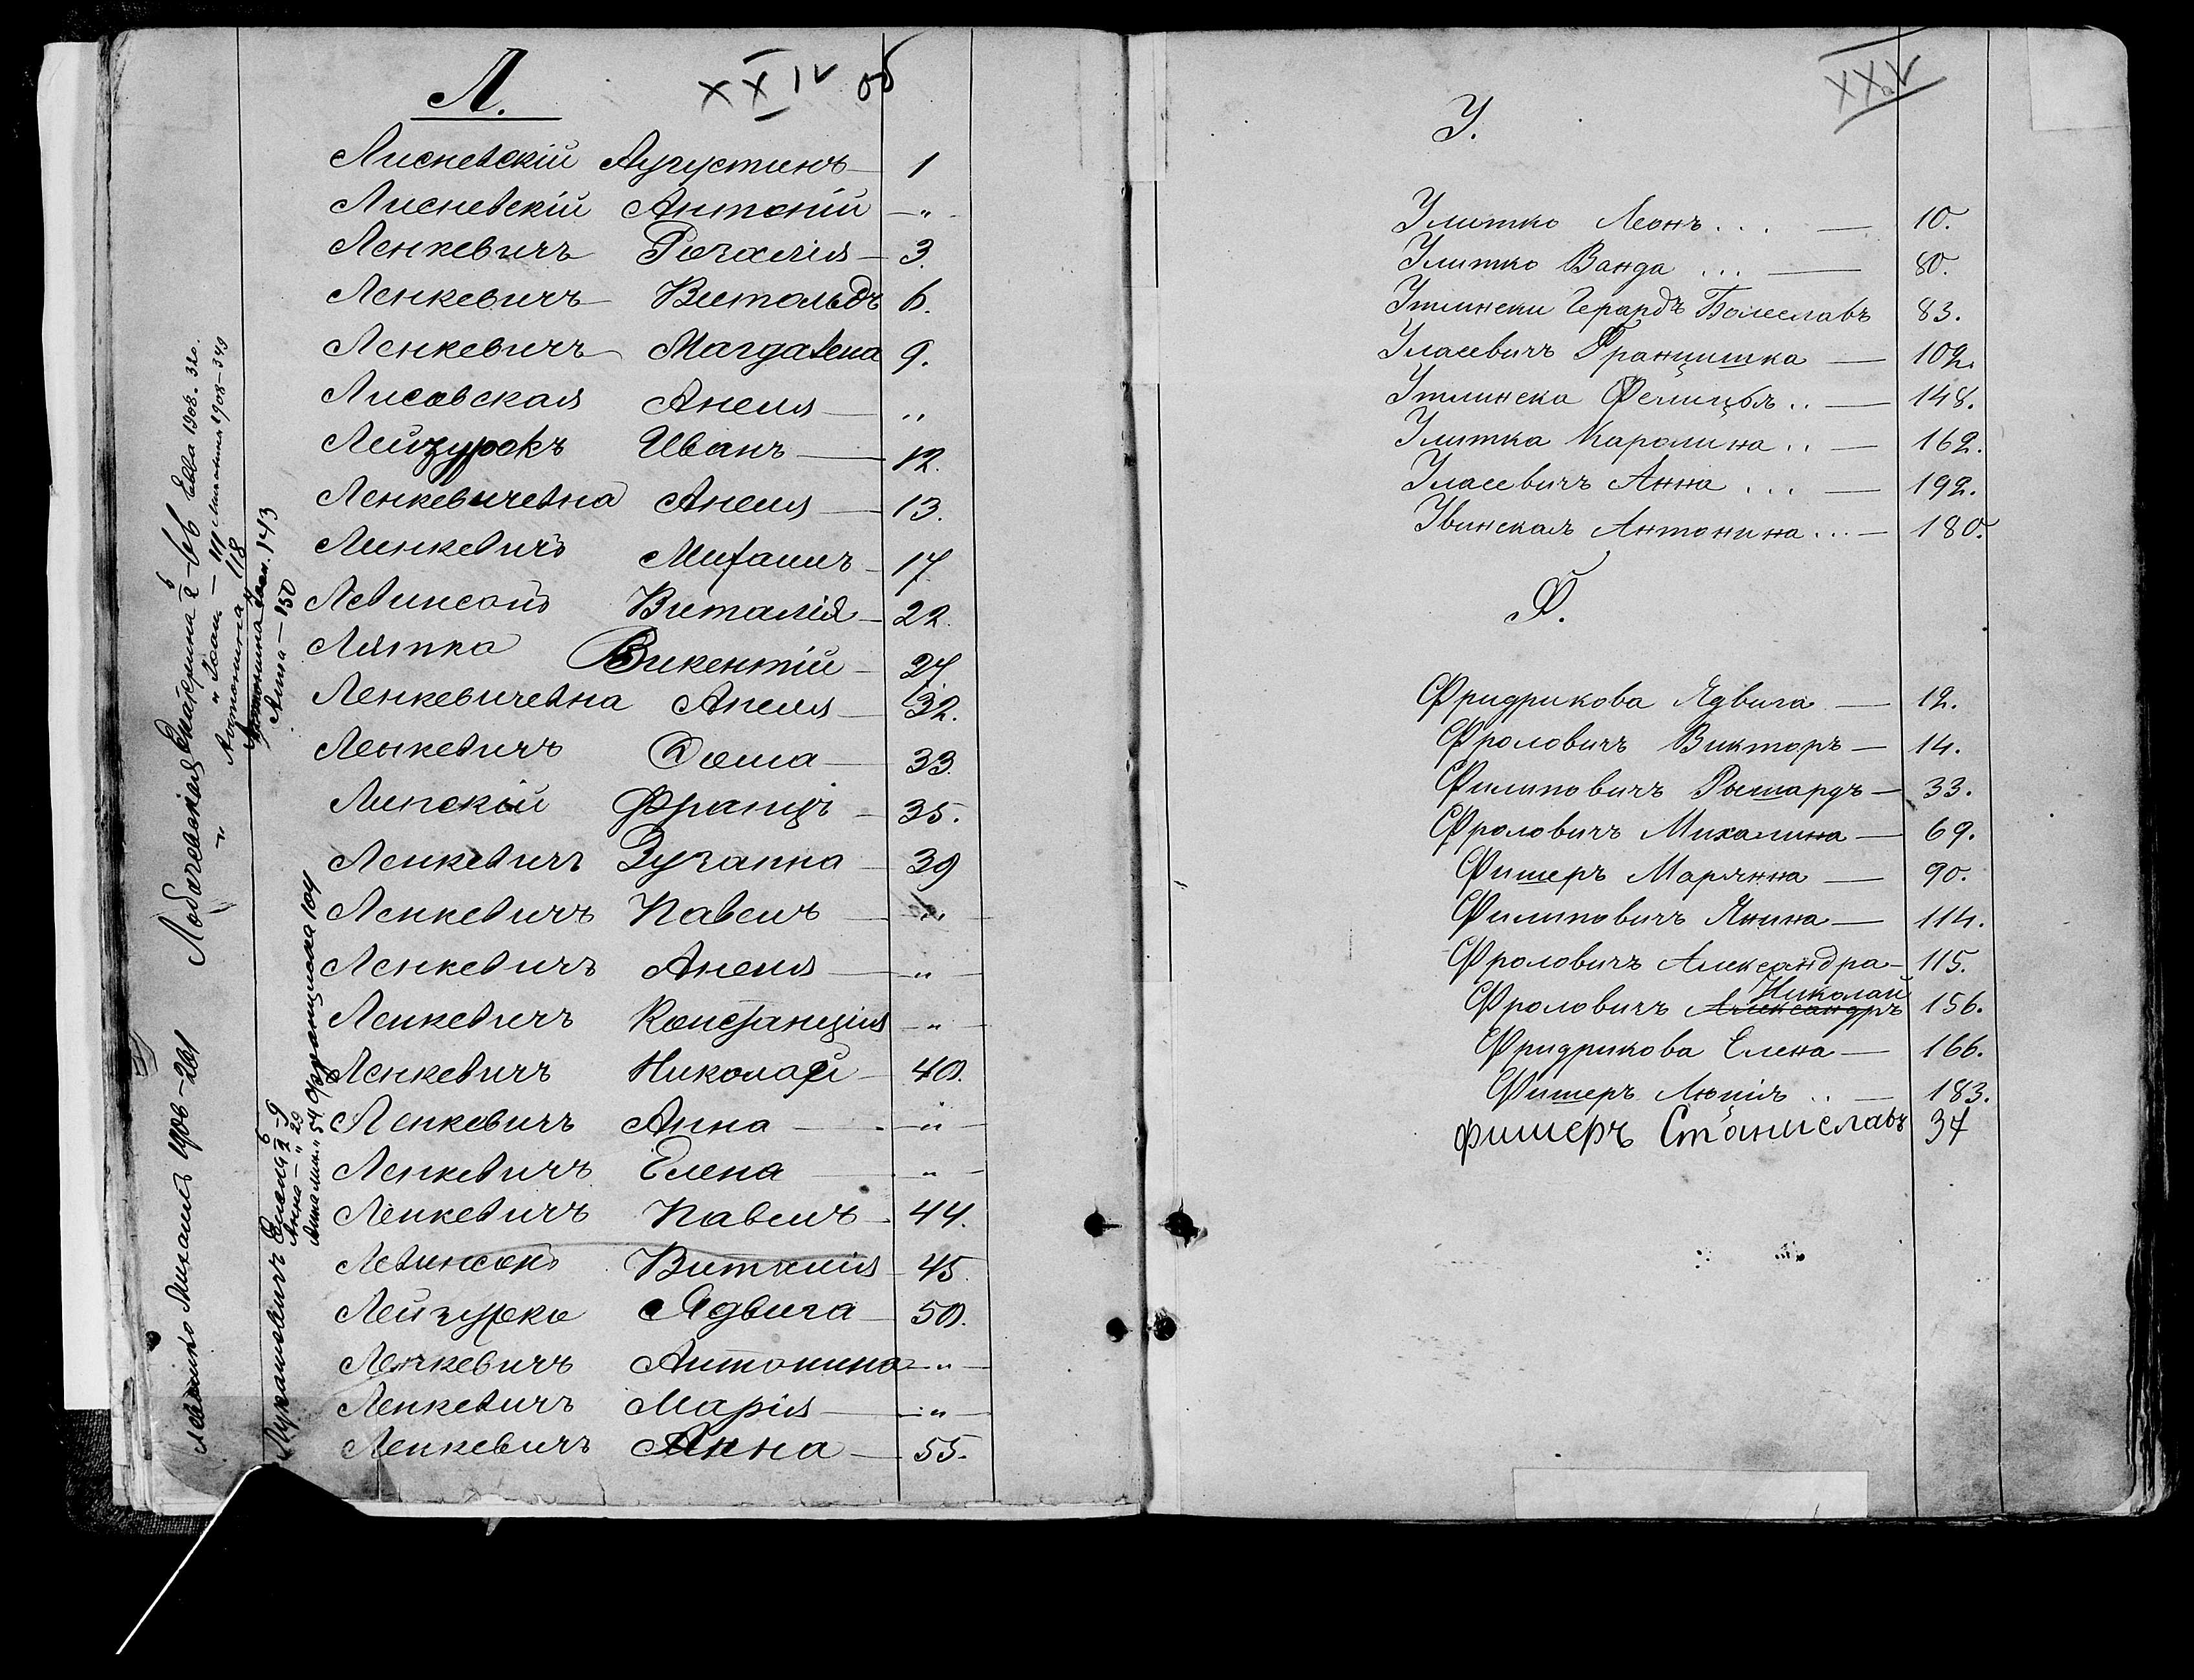 Л.
XXIV об
Лисневскій Аугустинъ — 1
Лисневскій Антоній — " —
Ленкевичъ Розалія — 3.
Ленкевичъ Витольдъ 6.
Ленкевичъ Магдалена 9.
Лисовская Анеля — "
Лейзурокъ Иванъ — 12.
Ленкевичевна Анеля — 13.
Линкевичъ Михаилъ — 17.
Левинсонъ Виталія — 22.
Ляшко Викентій — 27.
Ленкевичевна Анеля — 32.
Ленкевичъ Фома — 33.
Липскій Францъ — 35.
Ленкевичъ Зузанна — 39
Ленкевичъ Павелъ — "
Ленкевичъ Анеля — " —
Ленкевичъ Констанція — " —
Ленкевичъ Николай — 40.
Ленкевичъ Анна — " —
Ленкевичъ Елена — " —
Ленкевичъ Павелъ — 44.
Левинсонъ Виталія — 45.
Лейзурко Ядвига — 50.
Ленкевичъ Антонина — " —
Ленкевичъ Марія — " —
Ленкевичъ Анна — 55.
Михаилъ 1906-261
Елена 9
Анна — " 29
" 54 Францишка 104
Екатерина 66 1908. 320.
" Іоан. — 111 1908-349
Антонина " 118
Антонина Іоан. 143
Анна — 150
XXV
У.
Улитко Леонъ . . . — 10.
Улитко Ванда . . . — 80.
Утлински Герардъ Болеславъ 83.
Уласевичъ Францишка — 102.
Утлинска Фелиція . . — 148.
Улитка Каролина . . — 162.
Уласевичъ Анна . . . — 192.
Увинская Антонина . . . — 180.
Ф.
Фридрикова Ядвига — 12.
Фроловичъ Викторъ — 14.
Филиповичъ Рышардъ — 33.
Фроловичъ Михалина — 69.
Фишеръ Марянна — 90.
Филиповичъ Янина — 114.
Фроловичъ Александра — 115.
Николай
Фроловичъ Александръ 156.
Фридрикова Елена — 166.
Фишеръ Люція . . — 183.
Фишеръ Станиславъ 37